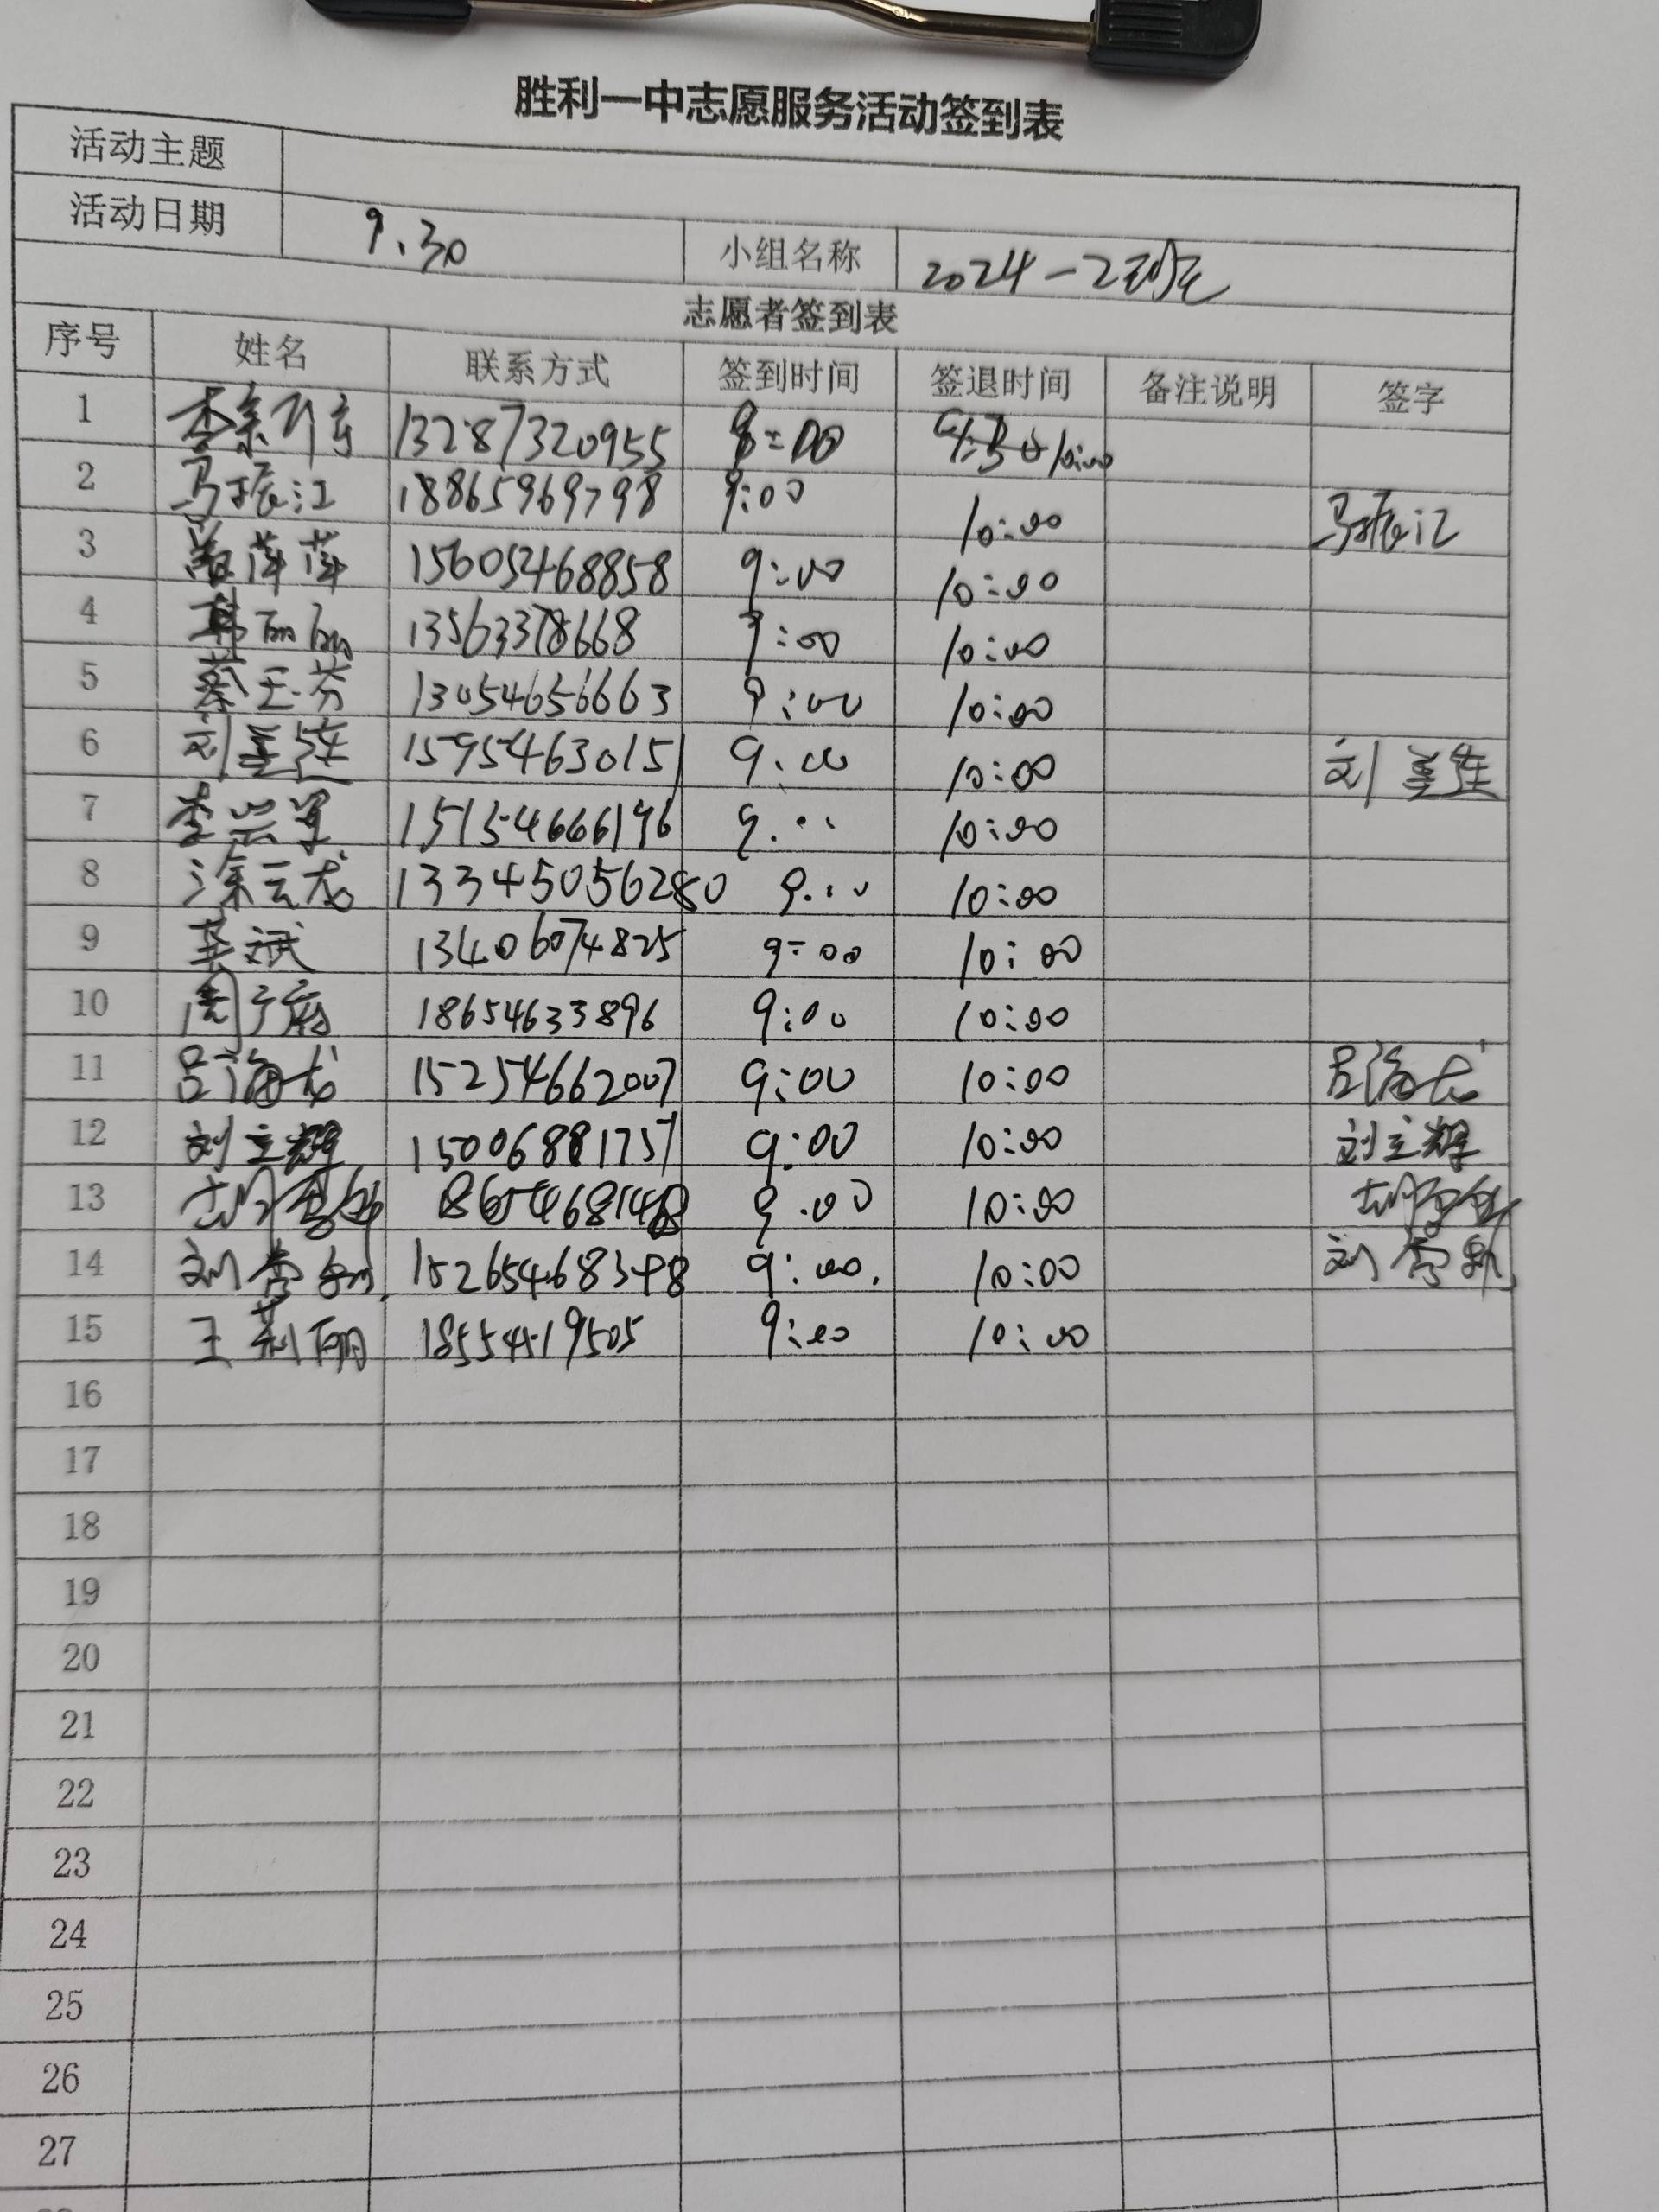 胜利一中志愿服务活动签到表
活动主题
活动日期 9.30 小组名称 2024-2班
志愿者签到表
序号 姓名 联系方式 签到时间 签退时间 备注说明 签字
1 13287320955 10:00
2 马振江 18865969798 9:00 10:00 马振江
3 萍萍 15605468858 9:00 10:00
4 韩丽丽 13563378668 9:00 10:00
5 蔡玉芬 13054656663 9:00 10:00
6 刘美莲 15954630151 9:00 10:00 刘美莲
7 李 军 15154666196 9:00 10:00
8 涂云龙 13345056280 9:00 10:00
9 斌 13406074825 9:00 10:00
10 周 18654633896 9:00 10:00
11 吕海龙 15254662007 9:00 10:00 吕海龙
12 刘立辉 15006881757 9:00 10:00 刘立辉
13 9:00 10:00
14 刘常 9:00. 10:00 刘常
15 王莉丽 18554519505 9:00 10:00
16
17
18
19
20
21
22
23
24
25
26
27